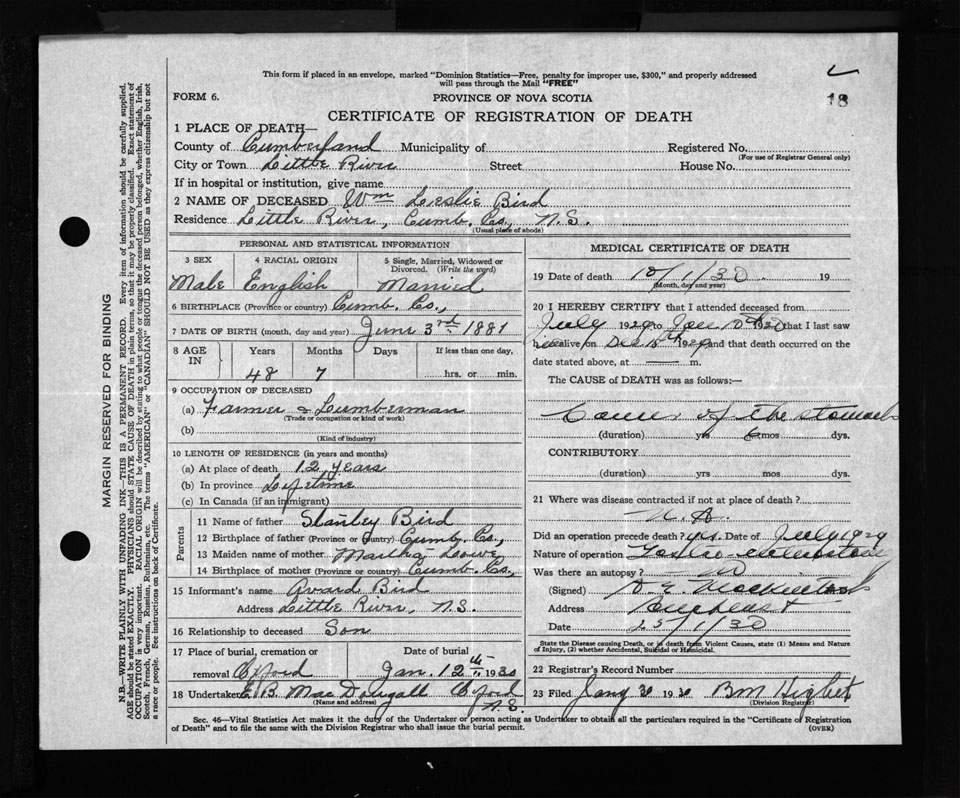 This form if placed in an envelope, marked "Dominion Statistics—Free, penalty for improper use, $300," and properly addressed
will pass through the Mail "FREE"
18
FORM 6.
PROVINCE OF NOVA SCOTIA
CERTIFICATE OF REGISTRATION OF DEATH
1 PLACE OF DEATH—
County of Cumberland Municipality of Registered No.
(For use of Registrar General only)
City or Town Little River Street House No.
If in hospital or institution, give name
2 NAME OF DECEASED Wm Leslie Bird
Residence Little River, Cumb. Co., N.S.
(Usual place of abode)
PERSONAL AND STATISTICAL INFORMATION
3 SEX 4 RACIAL ORIGIN 5 Single, Married, Widowed or
Divorced. (Write the word)
Male English Married
6 BIRTHPLACE (Province or country) Cumb. Co.,
7 DATE OF BIRTH (month, day and year) June 3rd 1881
8 AGE IN Years Months Days If less than one day,
48 7 hrs. or min.
9 OCCUPATION OF DECEASED
(a) Farmer & Lumberman
(Trade or occupation or kind of work)
(b)
(Kind of industry)
10 LENGTH OF RESIDENCE (in years and months)
(a) At place of death 12 years
(b) In province Lifetime
(c) In Canada (if an immigrant)
Parents
11 Name of father Stanley Bird
12 Birthplace of father (Province or country) Cumb. Co.,
13 Maiden name of mother Martha Lowe
14 Birthplace of mother (Province or country) Cumb. Co.,
15 Informant's name Avard Bird
Address Little River, N.S.
16 Relationship to deceased Son
17 Place of burial, cremation or Date of burial
removal Oxford Jan. 12th 1930
18 Undertaker E B. MacDougall Oxford
(Name and address) N.S.
MEDICAL CERTIFICATE OF DEATH
19 Date of death 10/1/30 19
(Month, day and year)
20 I HEREBY CERTIFY that I attended deceased from
July 1929 to Jan 10th 1930 that I last saw
alive on Dec 1929 and that death occurred on the
date stated above, at — m.
The CAUSE of DEATH was as follows:
Cancer of the stomach
(duration) yrs 6 mos dys.
CONTRIBUTORY
(duration) yrs mos dys.
21 Where was disease contracted if not at place of death?
N. A.
Did an operation precede death? yes. Date of July 1929
Nature of operation
Was there an autopsy? no
(Signed)
Address
Date 25/1/30
State the Disease causing Death, or in death from Violent Causes, state (1) Means and Nature
of Injury, (2) whether Accidental, Suicidal or Homicidal.
22 Registrar's Record Number
23 Filed Jany 30 1930 BM
(Division Registrar)
Sec. 46—Vital Statistics Act makes it the duty of the Undertaker or person acting as Undertaker to obtain all the particulars required in the "Certificate of Registration
of Death" and to file the same with the Division Registrar who shall issue the burial permit. (OVER)
MARGIN RESERVED FOR BINDING
N.B.—WRITE PLAINLY WITH UNFADING INK—THIS IS A PERMANENT RECORD. Every item of information should be carefully supplied.
AGE should be stated EXACTLY. PHYSICIANS should STATE CAUSE OF DEATH in plain terms, so that it may be properly classified. Exact statement of
OCCUPATION is very important. RACIAL ORIGIN will be described by stating to what people or tongue the deceased person belonged, whether English, Irish,
Scotch, French, German, Russian, Ruthenian, etc. The terms "AMERICAN" or "CANADIAN" SHOULD NOT BE USED as they express citizenship but not
a race or people. See instructions on back of Certificate.